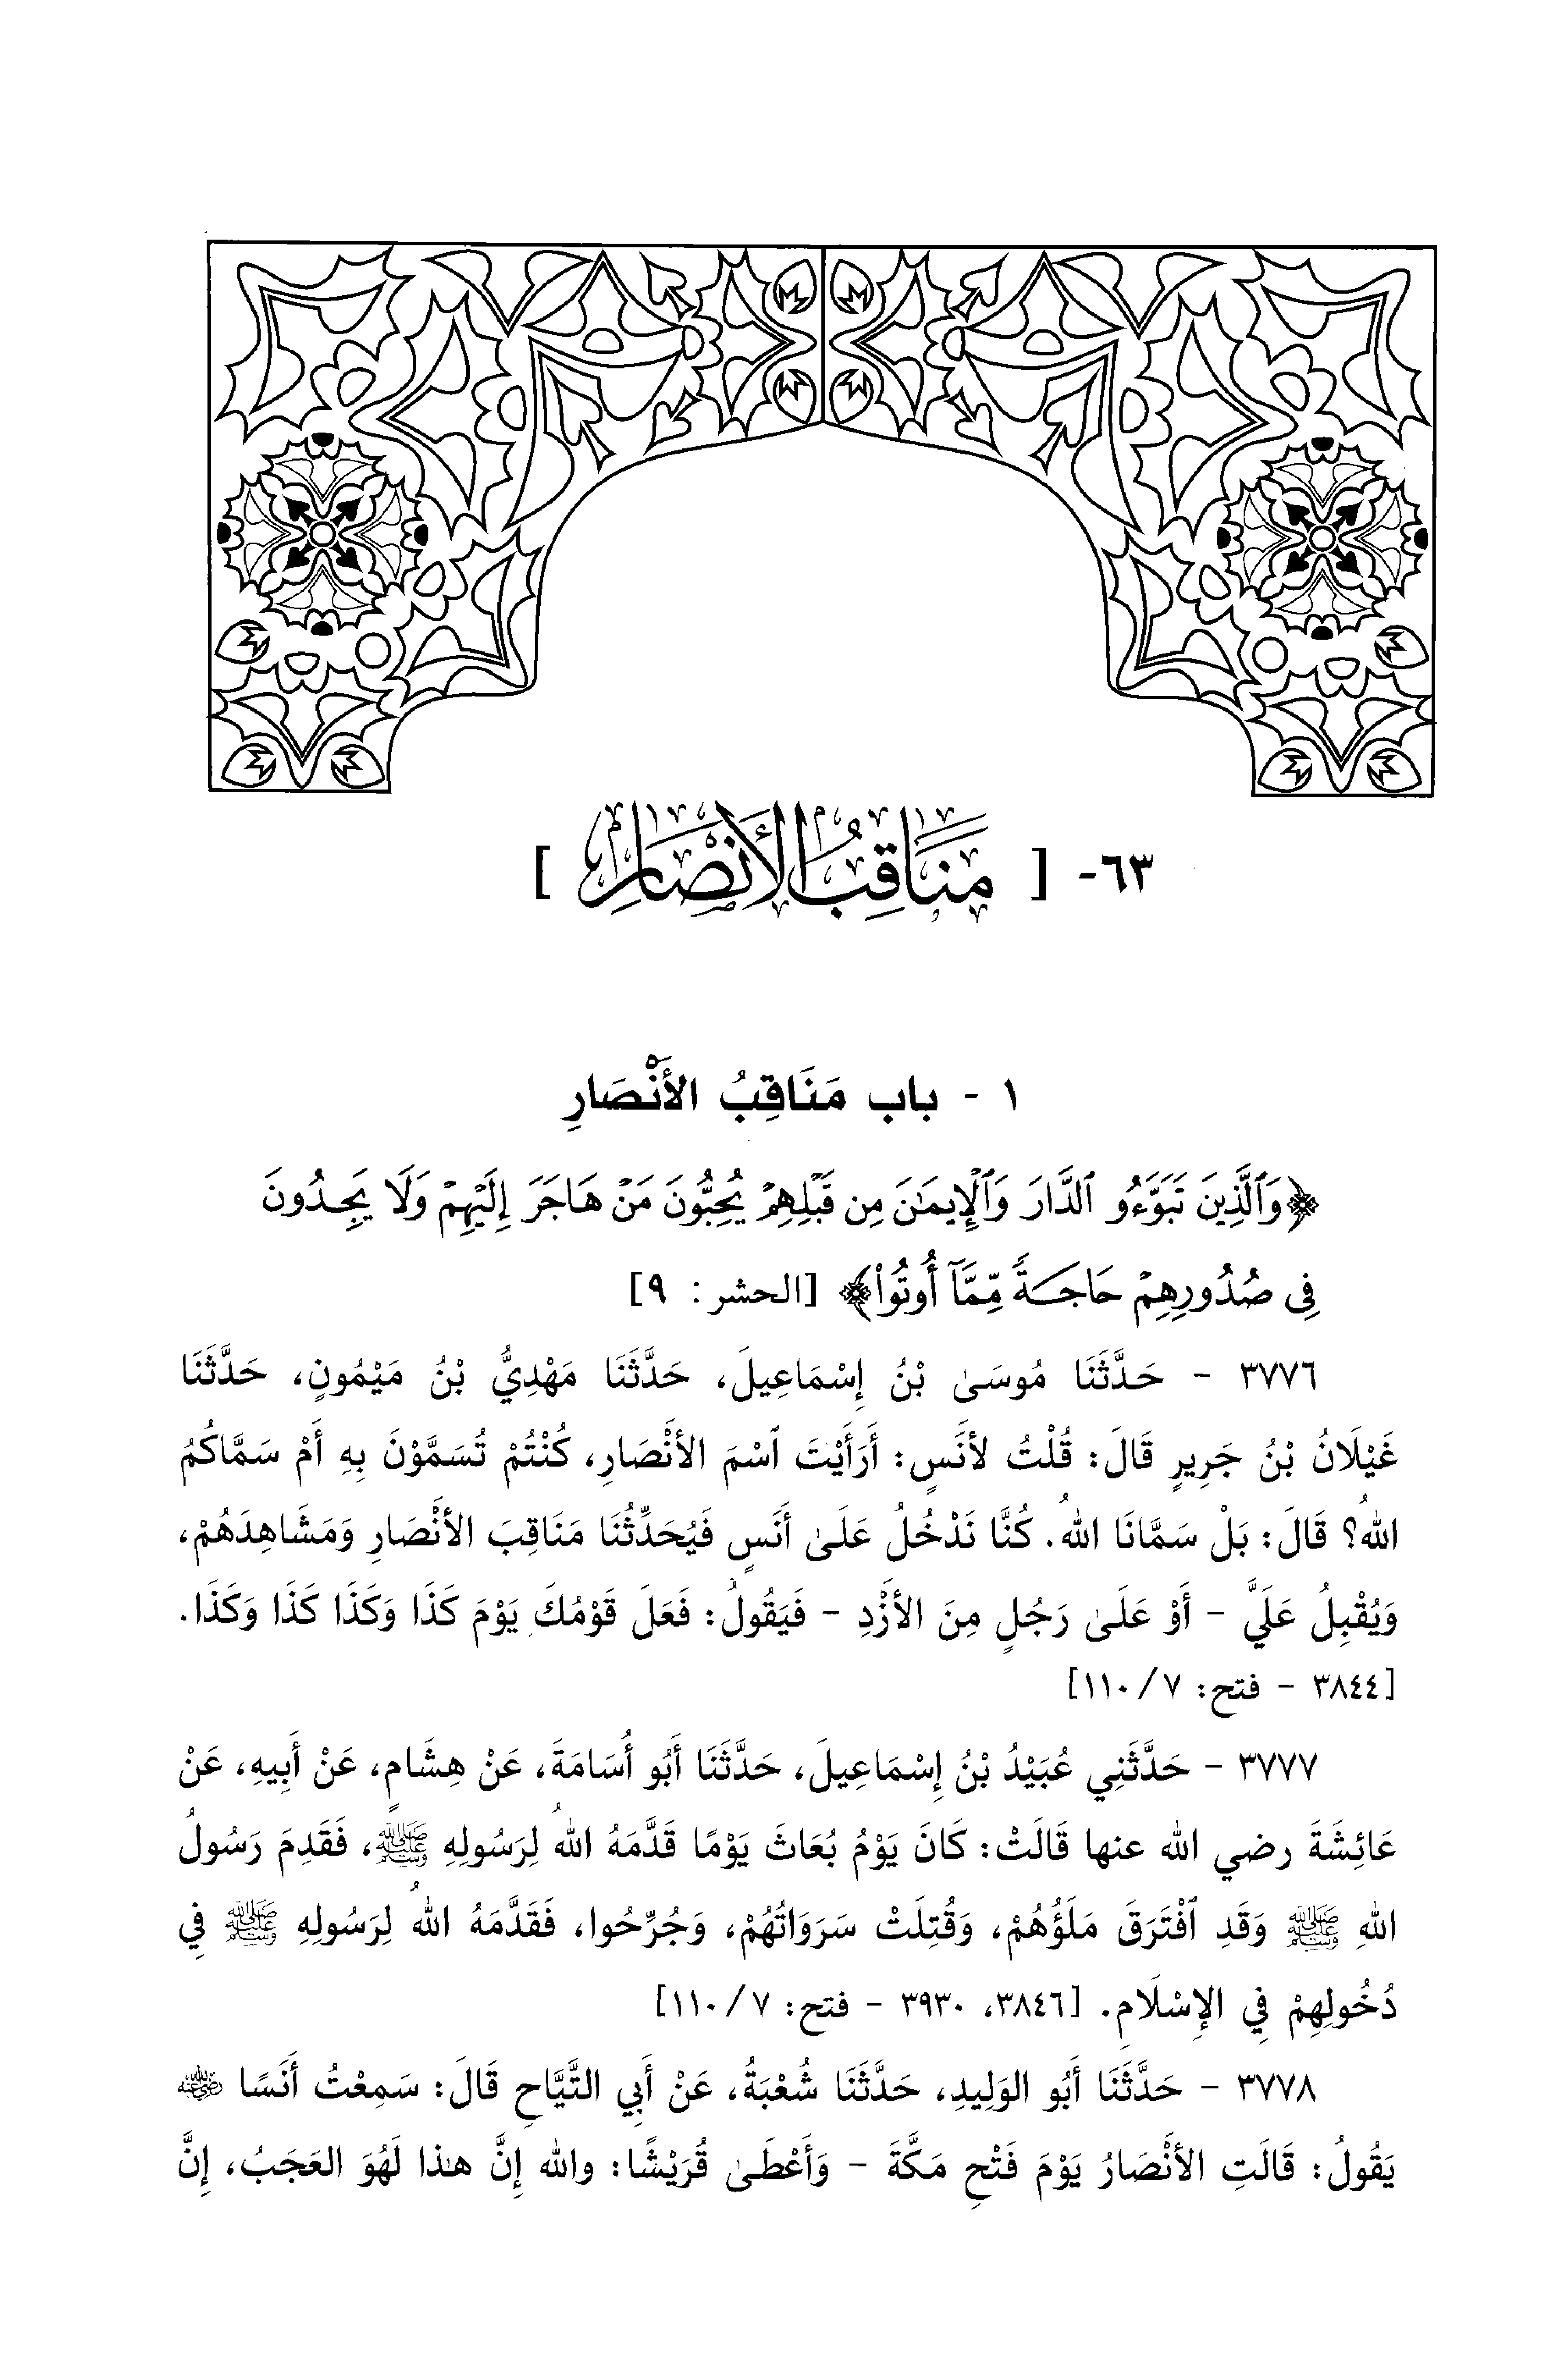 ٦٣- [ مَنَاقِبُ الأَنْصَارِ ]
١ - باب مَنَاقِبُ الأَنْصَارِ
﴿وَٱلَّذِينَ تَبَوَّءُو ٱلدَّارَ وَٱلْإِيمَٰنَ مِن قَبْلِهِمْ يُحِبُّونَ مَنْ هَاجَرَ إِلَيْهِمْ وَلَا يَجِدُونَ
فِى صُدُورِهِمْ حَاجَةً مِّمَّآ أُوتُواْ﴾ [الحشر: ٩]
٣٧٧٦ - حَدَّثَنَا مُوسَىٰ بْنُ إِسْمَاعِيلَ، حَدَّثَنَا مَهْدِيُّ بْنُ مَيْمُونٍ، حَدَّثَنَا
غَيْلَانُ بْنُ جَرِيرٍ قَالَ: قُلْتُ لأَنَسٍ: أَرَأَيْتَ ٱسْمَ الأَنْصَارِ، كُنْتُمْ تُسَمَّوْنَ بِهِ أَمْ سَمَّاكُمُ
اللهُ؟ قَالَ: بَلْ سَمَّانَا اللهُ. كُنَّا نَدْخُلُ عَلَىٰ أَنَسٍ فَيُحَدِّثُنَا مَنَاقِبَ الأَنْصَارِ وَمَشَاهِدَهُمْ،
وَيُقْبِلُ عَلَيَّ - أَوْ عَلَىٰ رَجُلٍ مِنَ الأَزْدِ - فَيَقُولُ: فَعَلَ قَوْمُكَ يَوْمَ كَذَا وَكَذَا كَذَا وَكَذَا.
[٣٨٤٤ - فتح: ٧/ ١١٠]
٣٧٧٧ - حَدَّثَنِي عُبَيْدُ بْنُ إِسْمَاعِيلَ، حَدَّثَنَا أَبُو أُسَامَةَ، عَنْ هِشَامٍ، عَنْ أَبِيهِ، عَنْ
عَائِشَةَ رضي الله عنها قَالَتْ: كَانَ يَوْمُ بُعَاثَ يَوْمًا قَدَّمَهُ اللهُ لِرَسُولِهِ ﷺ، فَقَدِمَ رَسُولُ
اللهِ ﷺ وَقَدِ ٱفْتَرَقَ مَلَؤُهُمْ، وَقُتِلَتْ سَرَوَاتُهُمْ، وَجُرِّحُوا، فَقَدَّمَهُ اللهُ لِرَسُولِهِ ﷺ فِي
دُخُولِهِمْ فِي الإِسْلَامِ. [٣٨٤٦، ٣٩٣٠ - فتح: ٧/ ١١٠]
٣٧٧٨ - حَدَّثَنَا أَبُو الوَلِيدِ، حَدَّثَنَا شُعْبَةُ، عَنْ أَبِي التَّيَّاحِ قَالَ: سَمِعْتُ أَنَسًا رضي الله عنه
يَقُولُ: قَالَتِ الأَنْصَارُ يَوْمَ فَتْحِ مَكَّةَ - وَأَعْطَىٰ قُرَيْشًا: والله إِنَّ هٰذا لَهُوَ العَجَبُ، إِنَّ